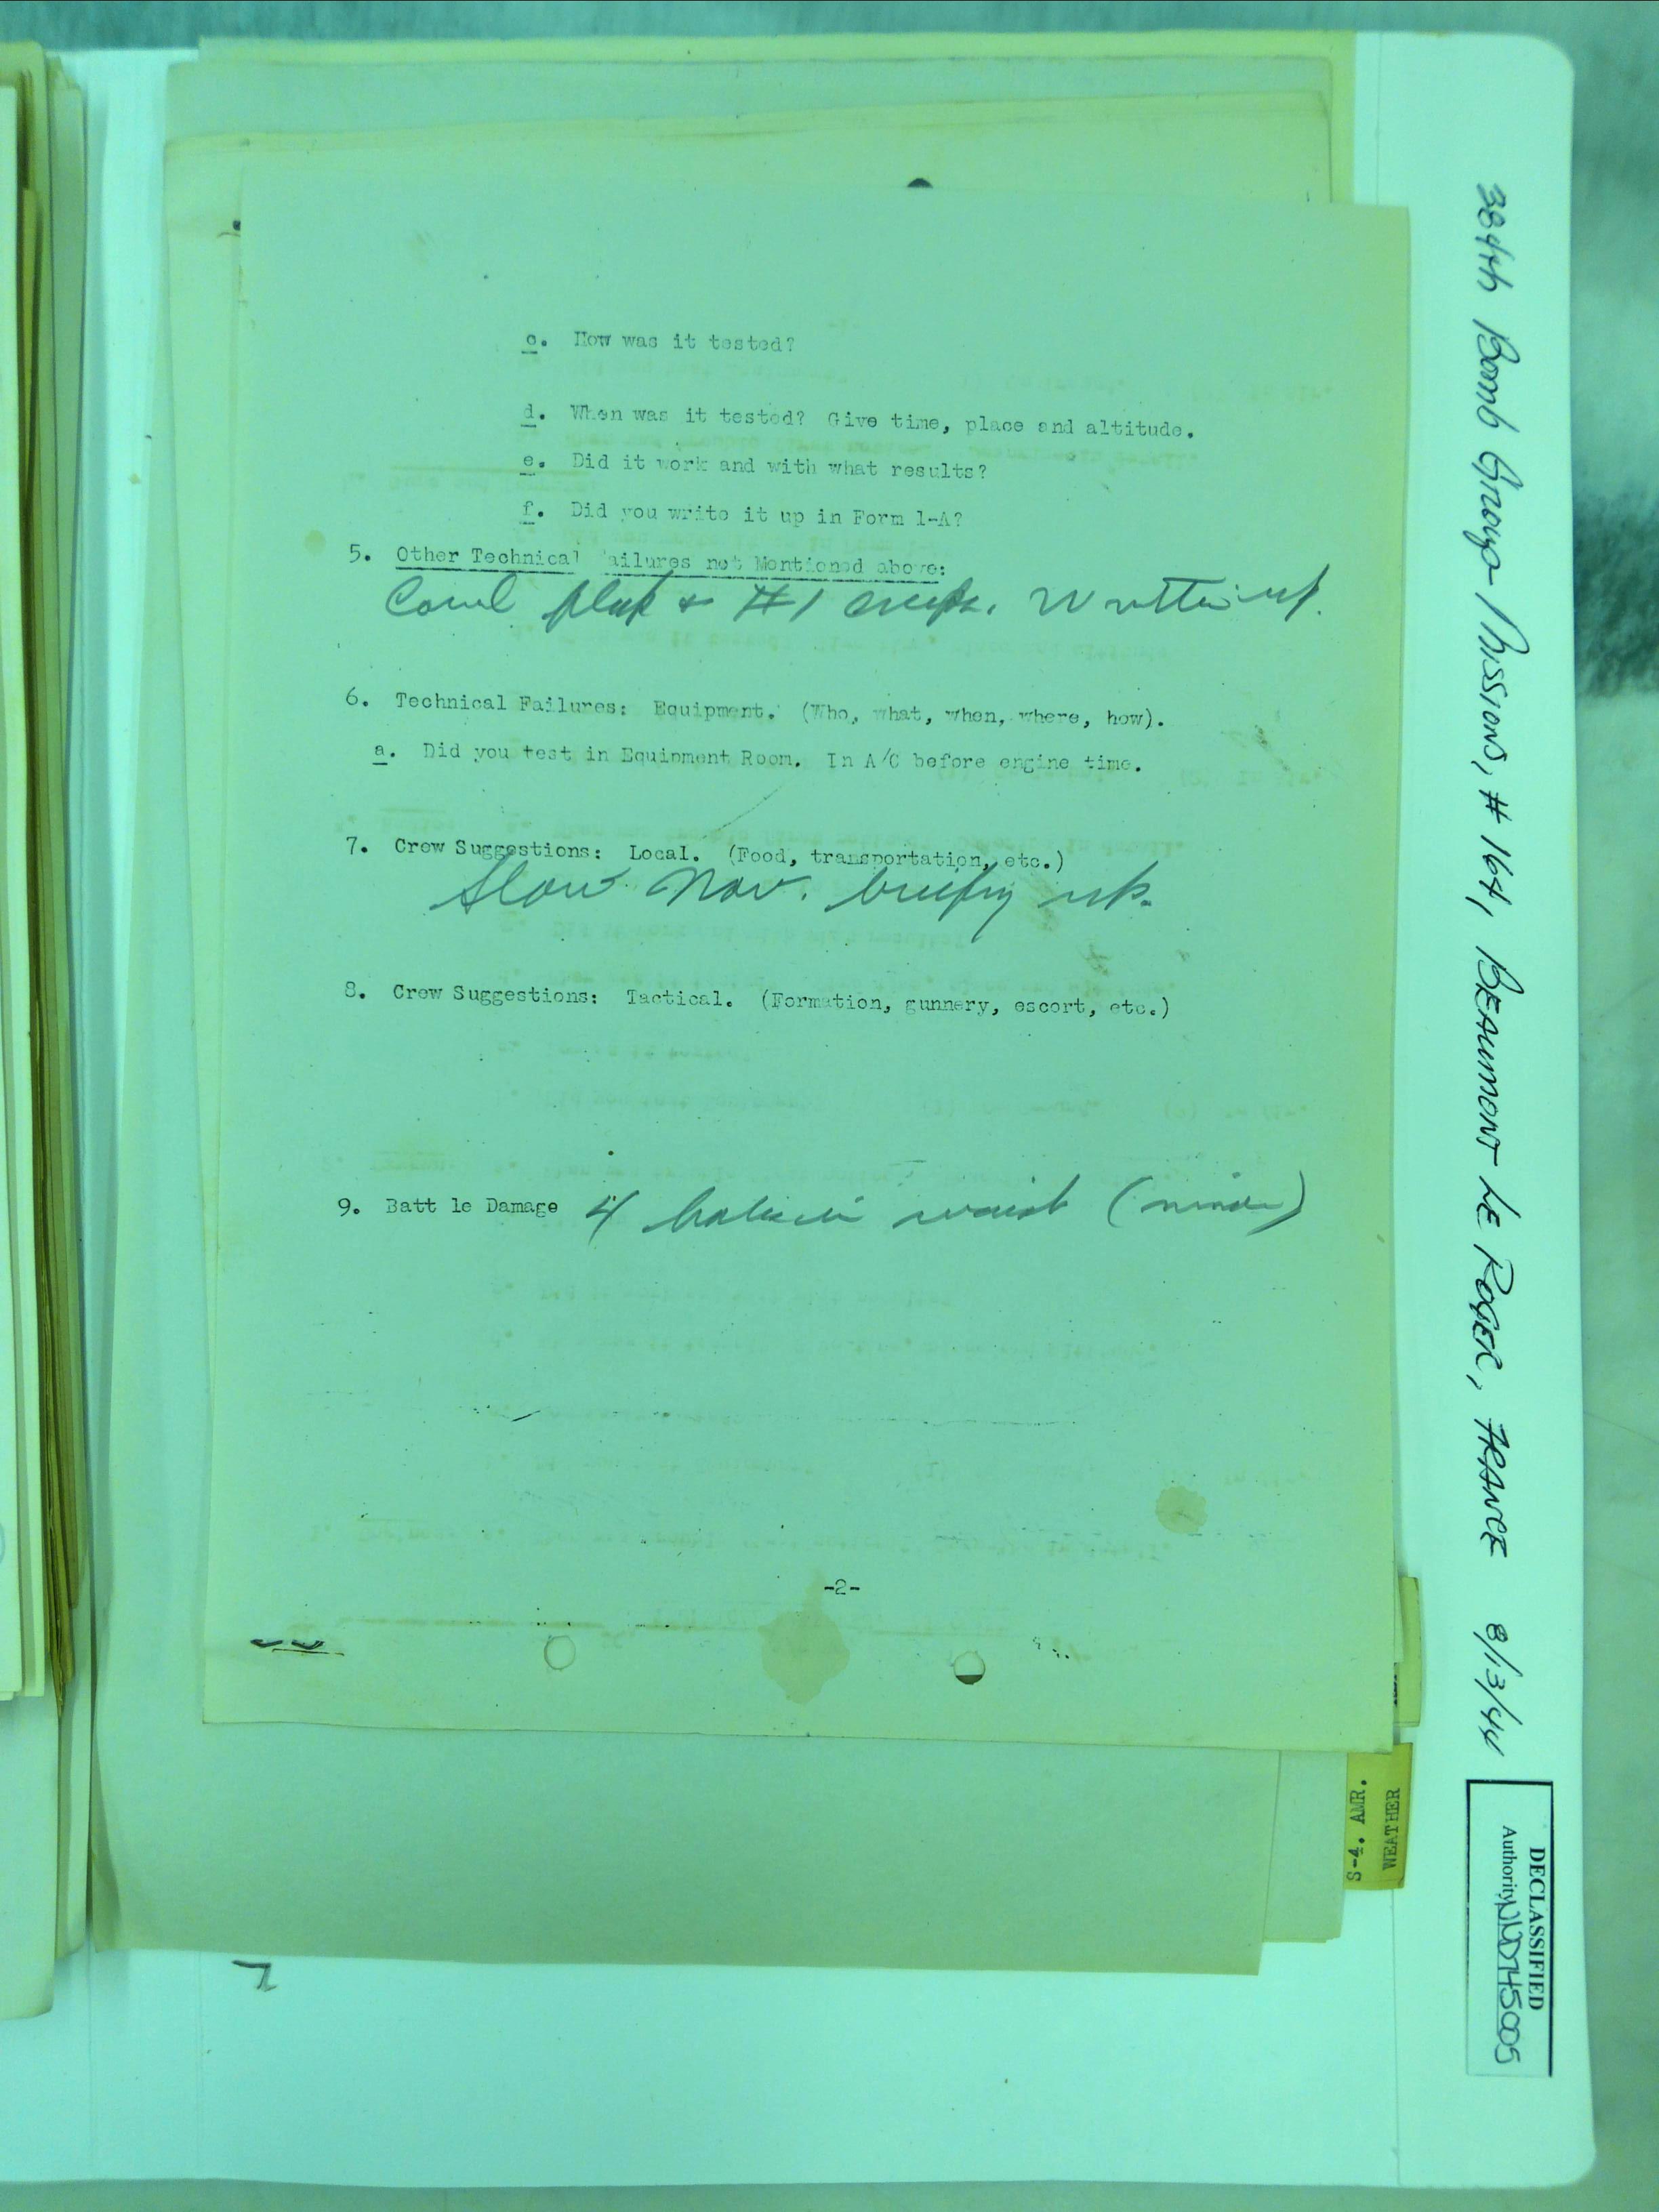 c. How was it tested?
d. When was it tested? Give time, place and altitude.
e. Did it work and with what results?
f. Did you write it up in Form 1-A?
5. Other Technical ailures not Mentioned above:
Cowl flap & #1 creeps. Written up.
6. Technical Failures: Equipment. (Who, what, when, where, how).
a. Did you test in Equipment Room. In A/C before engine time.
7. Crew Suggestions: Local. (Food, transportation, etc.)
Slow Nav. briefing up.
8. Crew Suggestions: Tactical. (Formation, gunnery, escort, etc.)
9. Batt le Damage 4 holes in waist (minor)
-2-
384th Bomb Group Missions, #164, BEAUMONT LE ROGER, FRANCE 8/13/44
S-4. AMR.
WEATHER
DECLASSIFIED
Authority NND745005